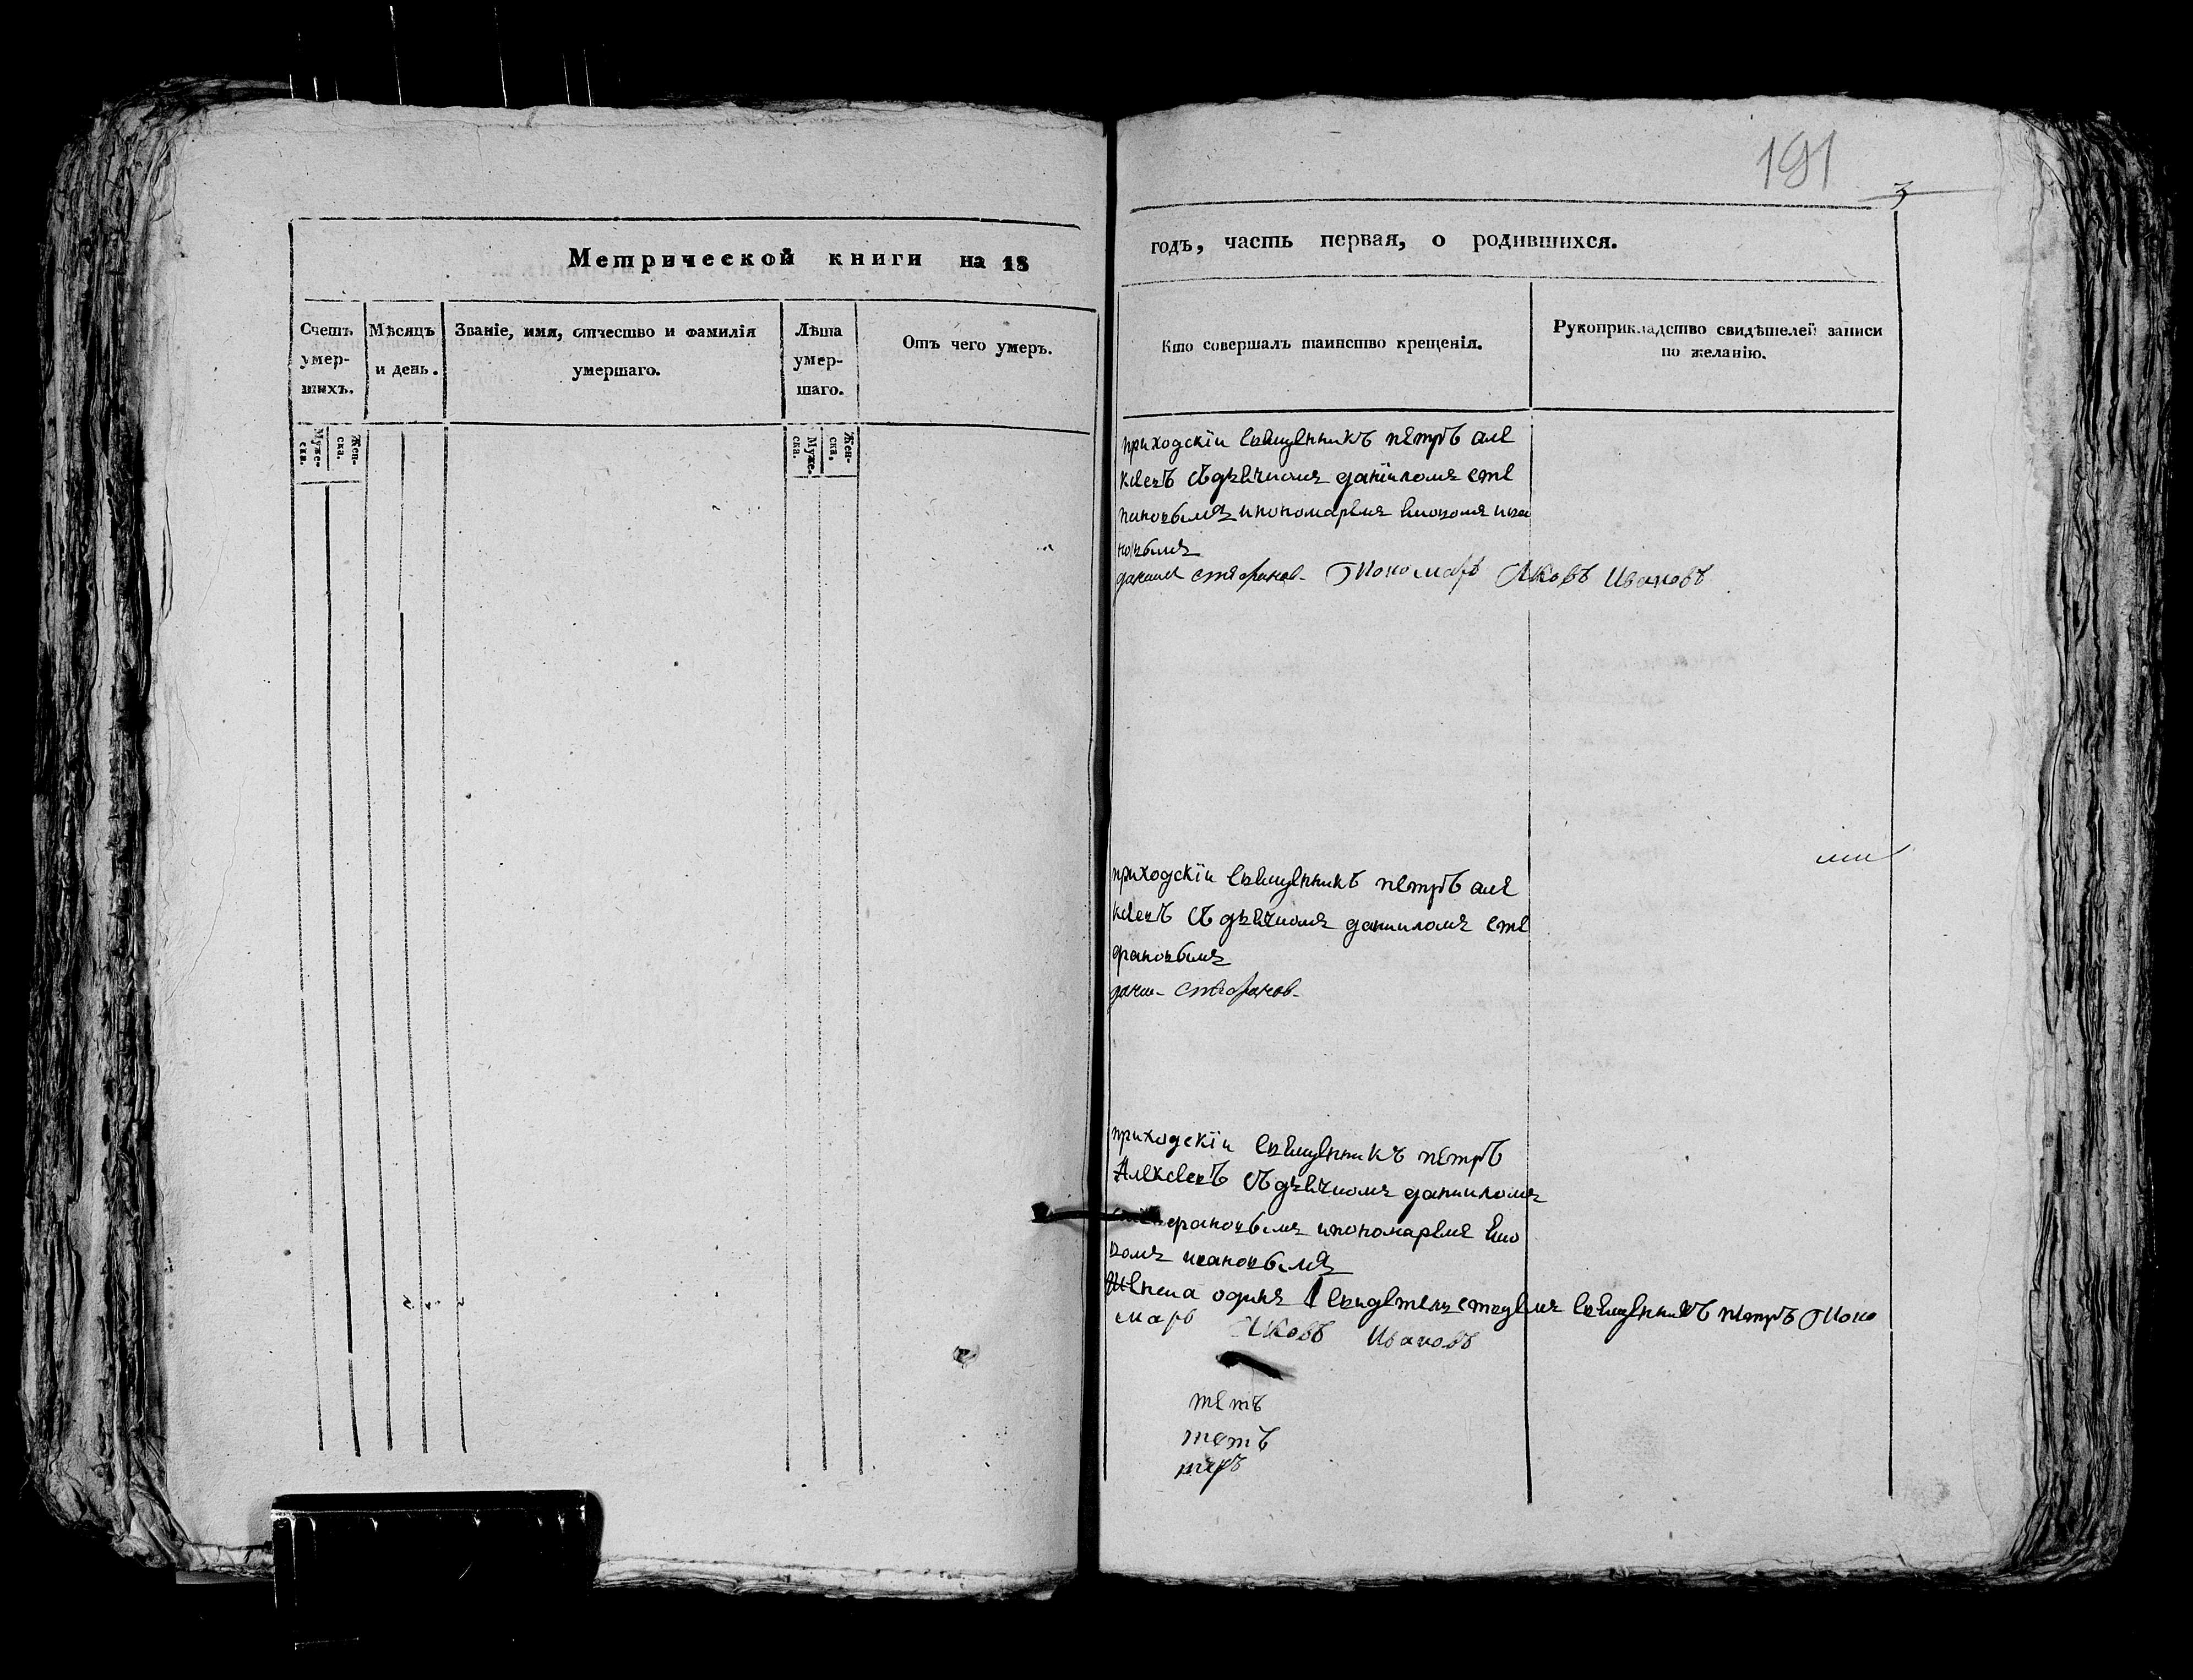 Метрической книги на 18
Счетъ умер-шихъ.
Мѣсяцъ и день.
Званіе, имя, отчество и фамилія умершаго.
Лѣта умер-шаго.
Отъ чего умеръ.
Муже-ска.
Жен-ска.
Муже-ска.
Жен-ска.
191
3
годъ, часть первая, о родившихся.
Кто совершалъ таинство крещенія.
Рукоприкладство свидѣтелей записи по желанію.
приходскїи священникъ петръ але
ксеевъ съ дьячкомъ данїиломъ сте
и пономаремъ ива
новымъ
Пономарь Яковъ Ивановъ
приходскїи священникъ петръ але
ксеевъ съ дьячкомъ данииломъ сте
фановымъ
стефанов
приходскїи священникъ петръ
Алексеевъ съ дьячкомъ данииломъ
фановымъ и пономаремъ
ивановымъ
одинъ священникъ петръ Поно
марь Яковъ Ивановъ